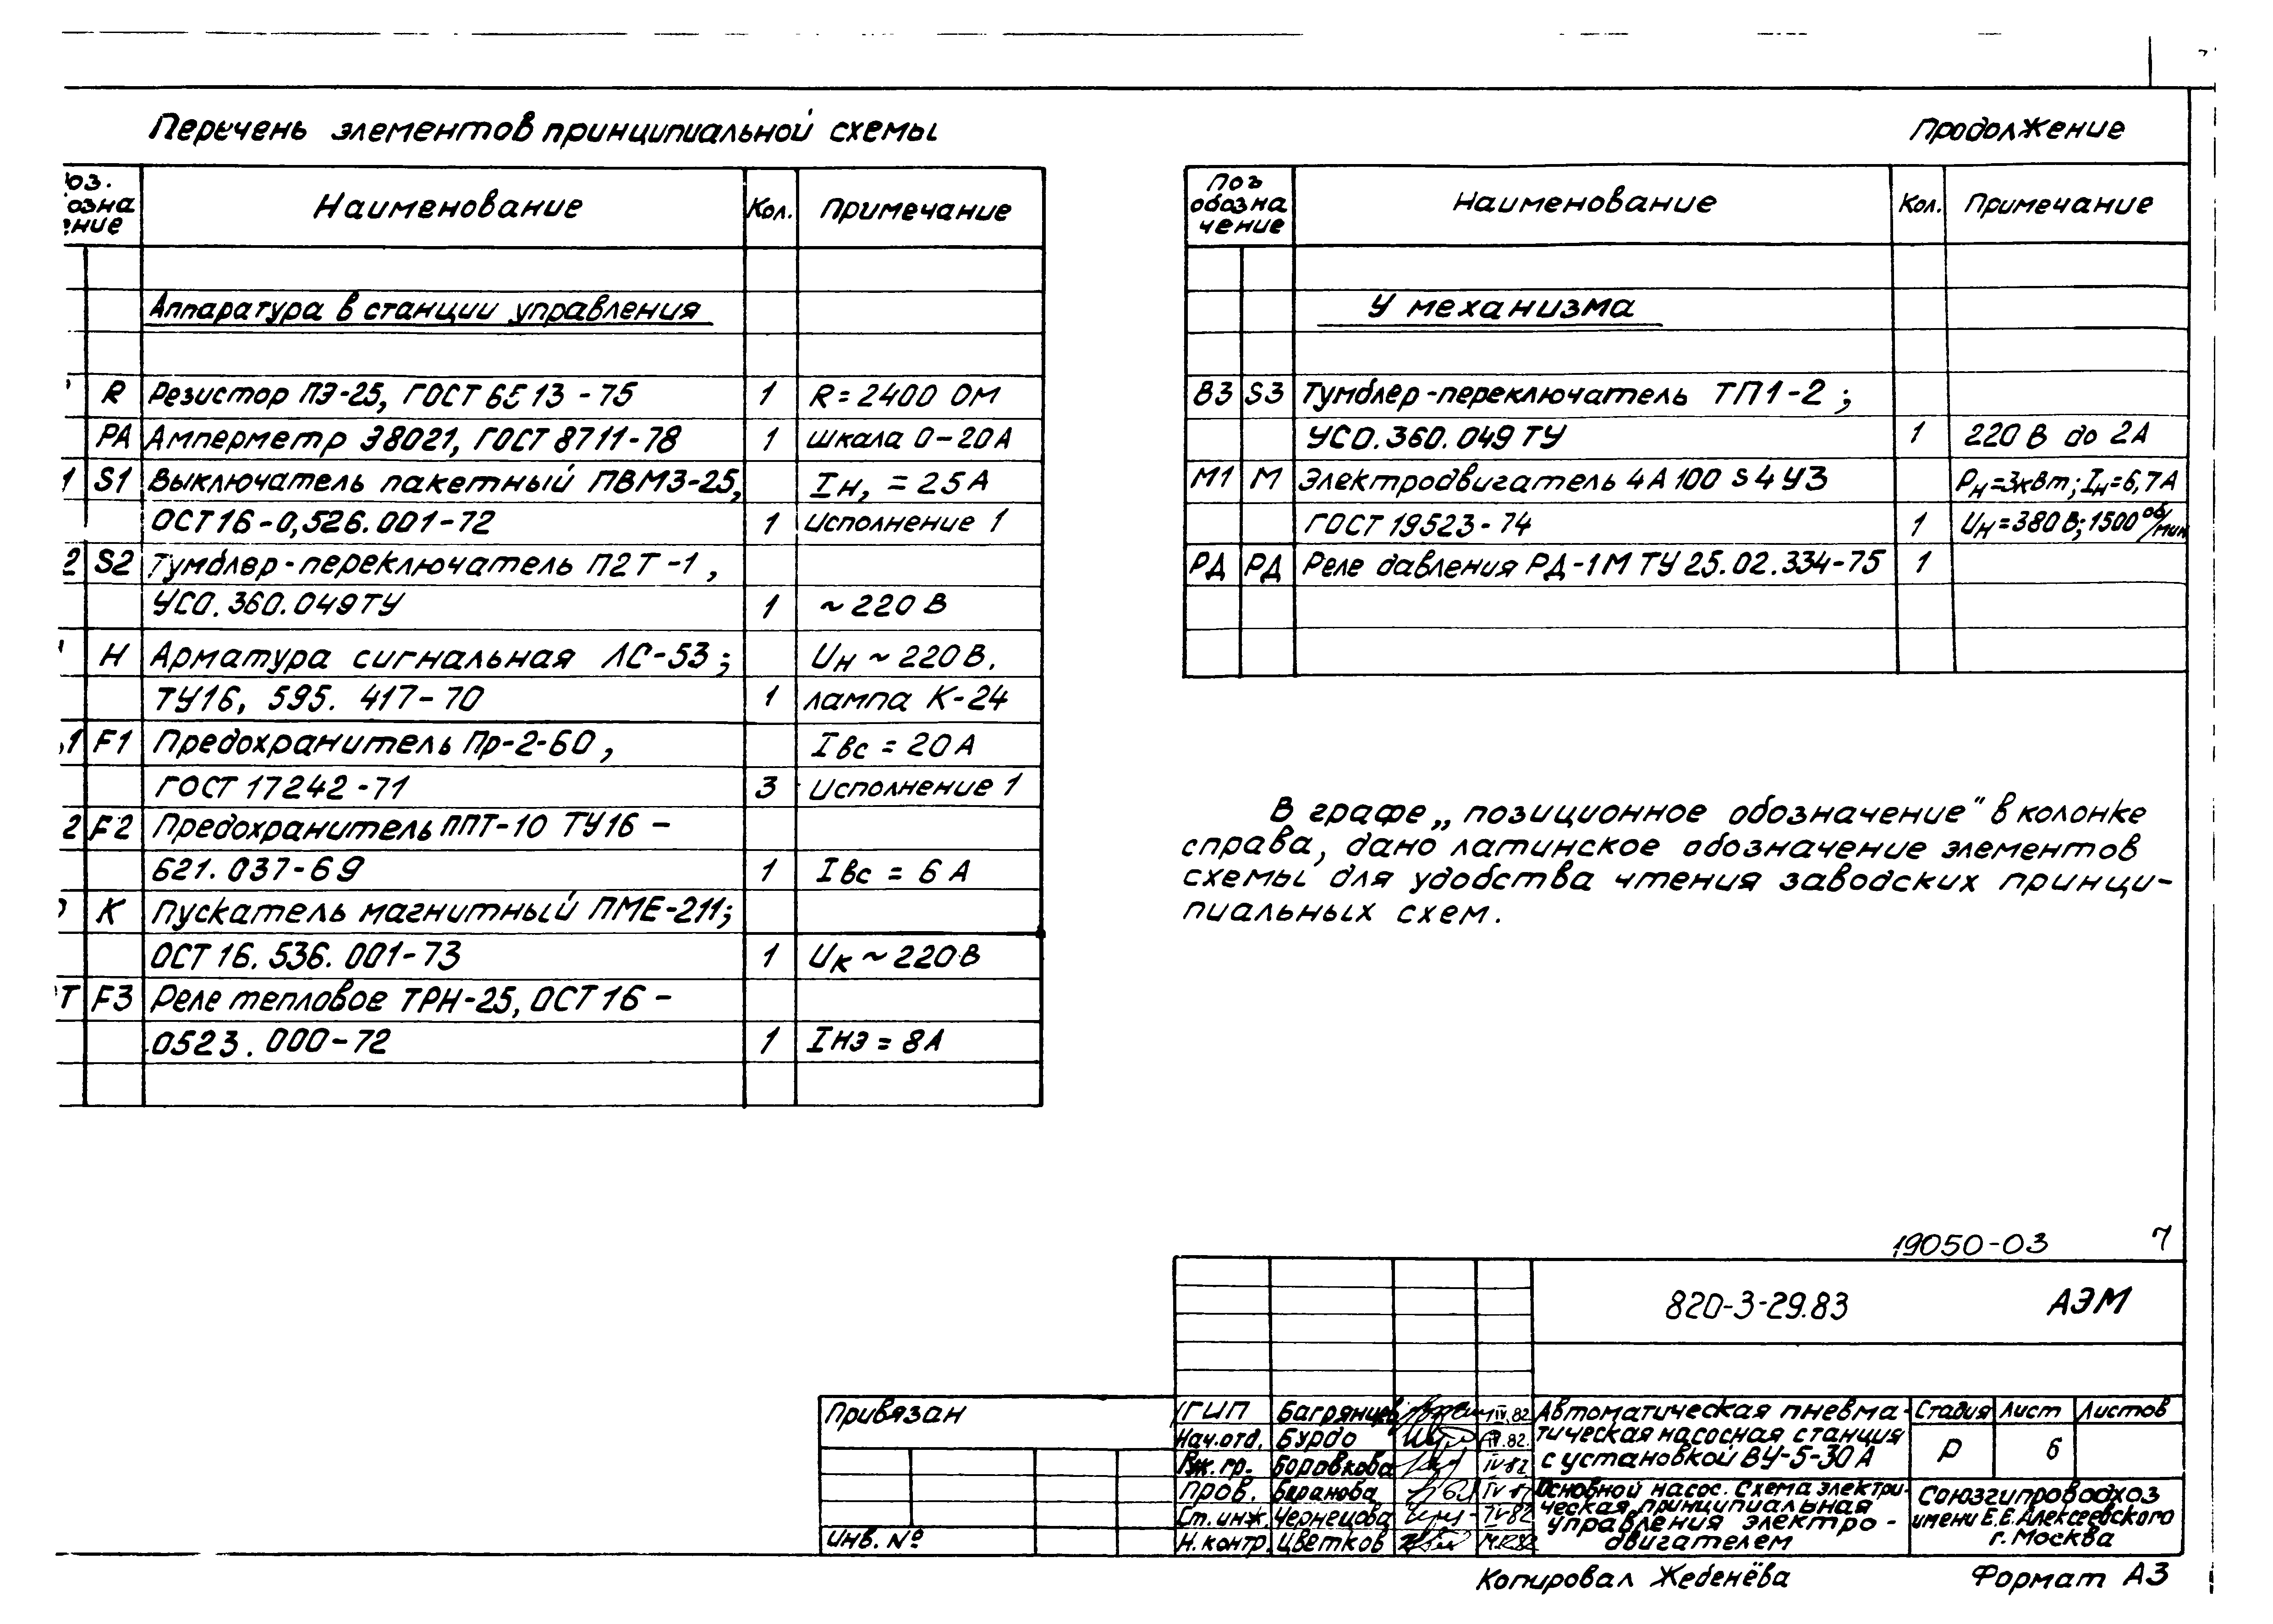 Перечень элементов принципиальной схемы
Наименование Кол. Примечание
Аппаратура в станции управления
R Резистор ПЭ-25, ГОСТ 6513-75 1 R=2400 ОМ
РА Амперметр Э8021, ГОСТ 8711-78 1 шкала 0-20А
1 S1 Выключатель пакетный ПВМ3-25, Iн, = 25А
ОСТ16-0,526.001-72 1 Исполнение 1
2 S2 Тумблер-переключатель П2Т-1,
УСО.360.049ТУ 1 ~220В
Н Арматура сигнальная ЛС-53; Uн ~ 220В.
ТУ16, 595. 417-70 1 лампа К-24
1 F1 Предохранитель Пр-2-60, Iвс = 20А
ГОСТ 17242-71 3 Исполнение 1
2 F2 Предохранитель ППТ-10 ТУ16 -
621.037-69 1 Iвс = 6А
К Пускатель магнитный ПМЕ-211;
ОСТ 16. 536. 001-73 1 Uк ~ 220В
Т F3 Реле тепловое ТРН-25, ОСТ 16 -
0523.000-72 1 Iнэ = 8А
Продолжение
Поз обозна чение Наименование Кол. Примечание
У механизма
В3 S3 Тумблер-переключатель ТП1-2;
УСО.360.049 ТУ 1 220В до 2А
М1 М Электродвигатель 4А100 S4У3 Рн=3кВт; Iн=6,7А
ГОСТ 19523-74 1 Uн=380В; 1500 об/мин
РД РД Реле давления РД-1М ТУ 25.02.334-75 1
В графе „позиционное обозначение" в колонке
справа, дано латинское обозначение элементов
схемы для удобства чтения заводских принци-
пиальных схем.
19050-03 7
820-3-29.83 АЭМ
Привязан
Инв. №
ГИП Багрянцев IV.82
Нач.отд. Бурдо IV.82.
Рук. гр. Боровкова IV 82
Пров. Баранова
Ст. инж. Чернецова IV 82
Н. контр. Цветков
Автоматическая пневма-
тическая насосная станция
с установкой ВУ-5-30А
Стадия Лист Листов
Р 6
Основной насос. Схема электри-
ческая принципиальная
управления электро-
двигателем
Союзгипроводхоз
имени Е.Е.Алексеевского
г. Москва
Копировал Жебенёва Формат А3